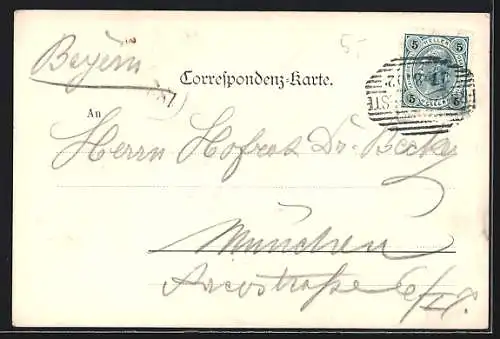 5,-
Bayern
5 HELLER 5
Correspondenz-Karte.
An
Herrn Hofrat Dr. Beck
München
Arcostraße 6/II.